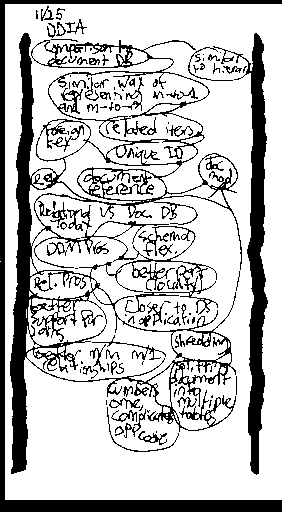 11/25
DDIA
Comparison to
document DB
Similar
to hierarch
Similar way of
representing m-to-1
and m-to-m
foreign
key
related item
Unique ID
document
reference
doc
mod
Rel
Relational VS Doc. DB
Today
DDM Pros
schema
flex.
better perf
(locality)
Rel. Pros
better
support for
joins
Closer to DS
in application
better m/m m/1
relationships
shredding
splitting
document
into
multiple
tables
cumbersome,
complicated
app code